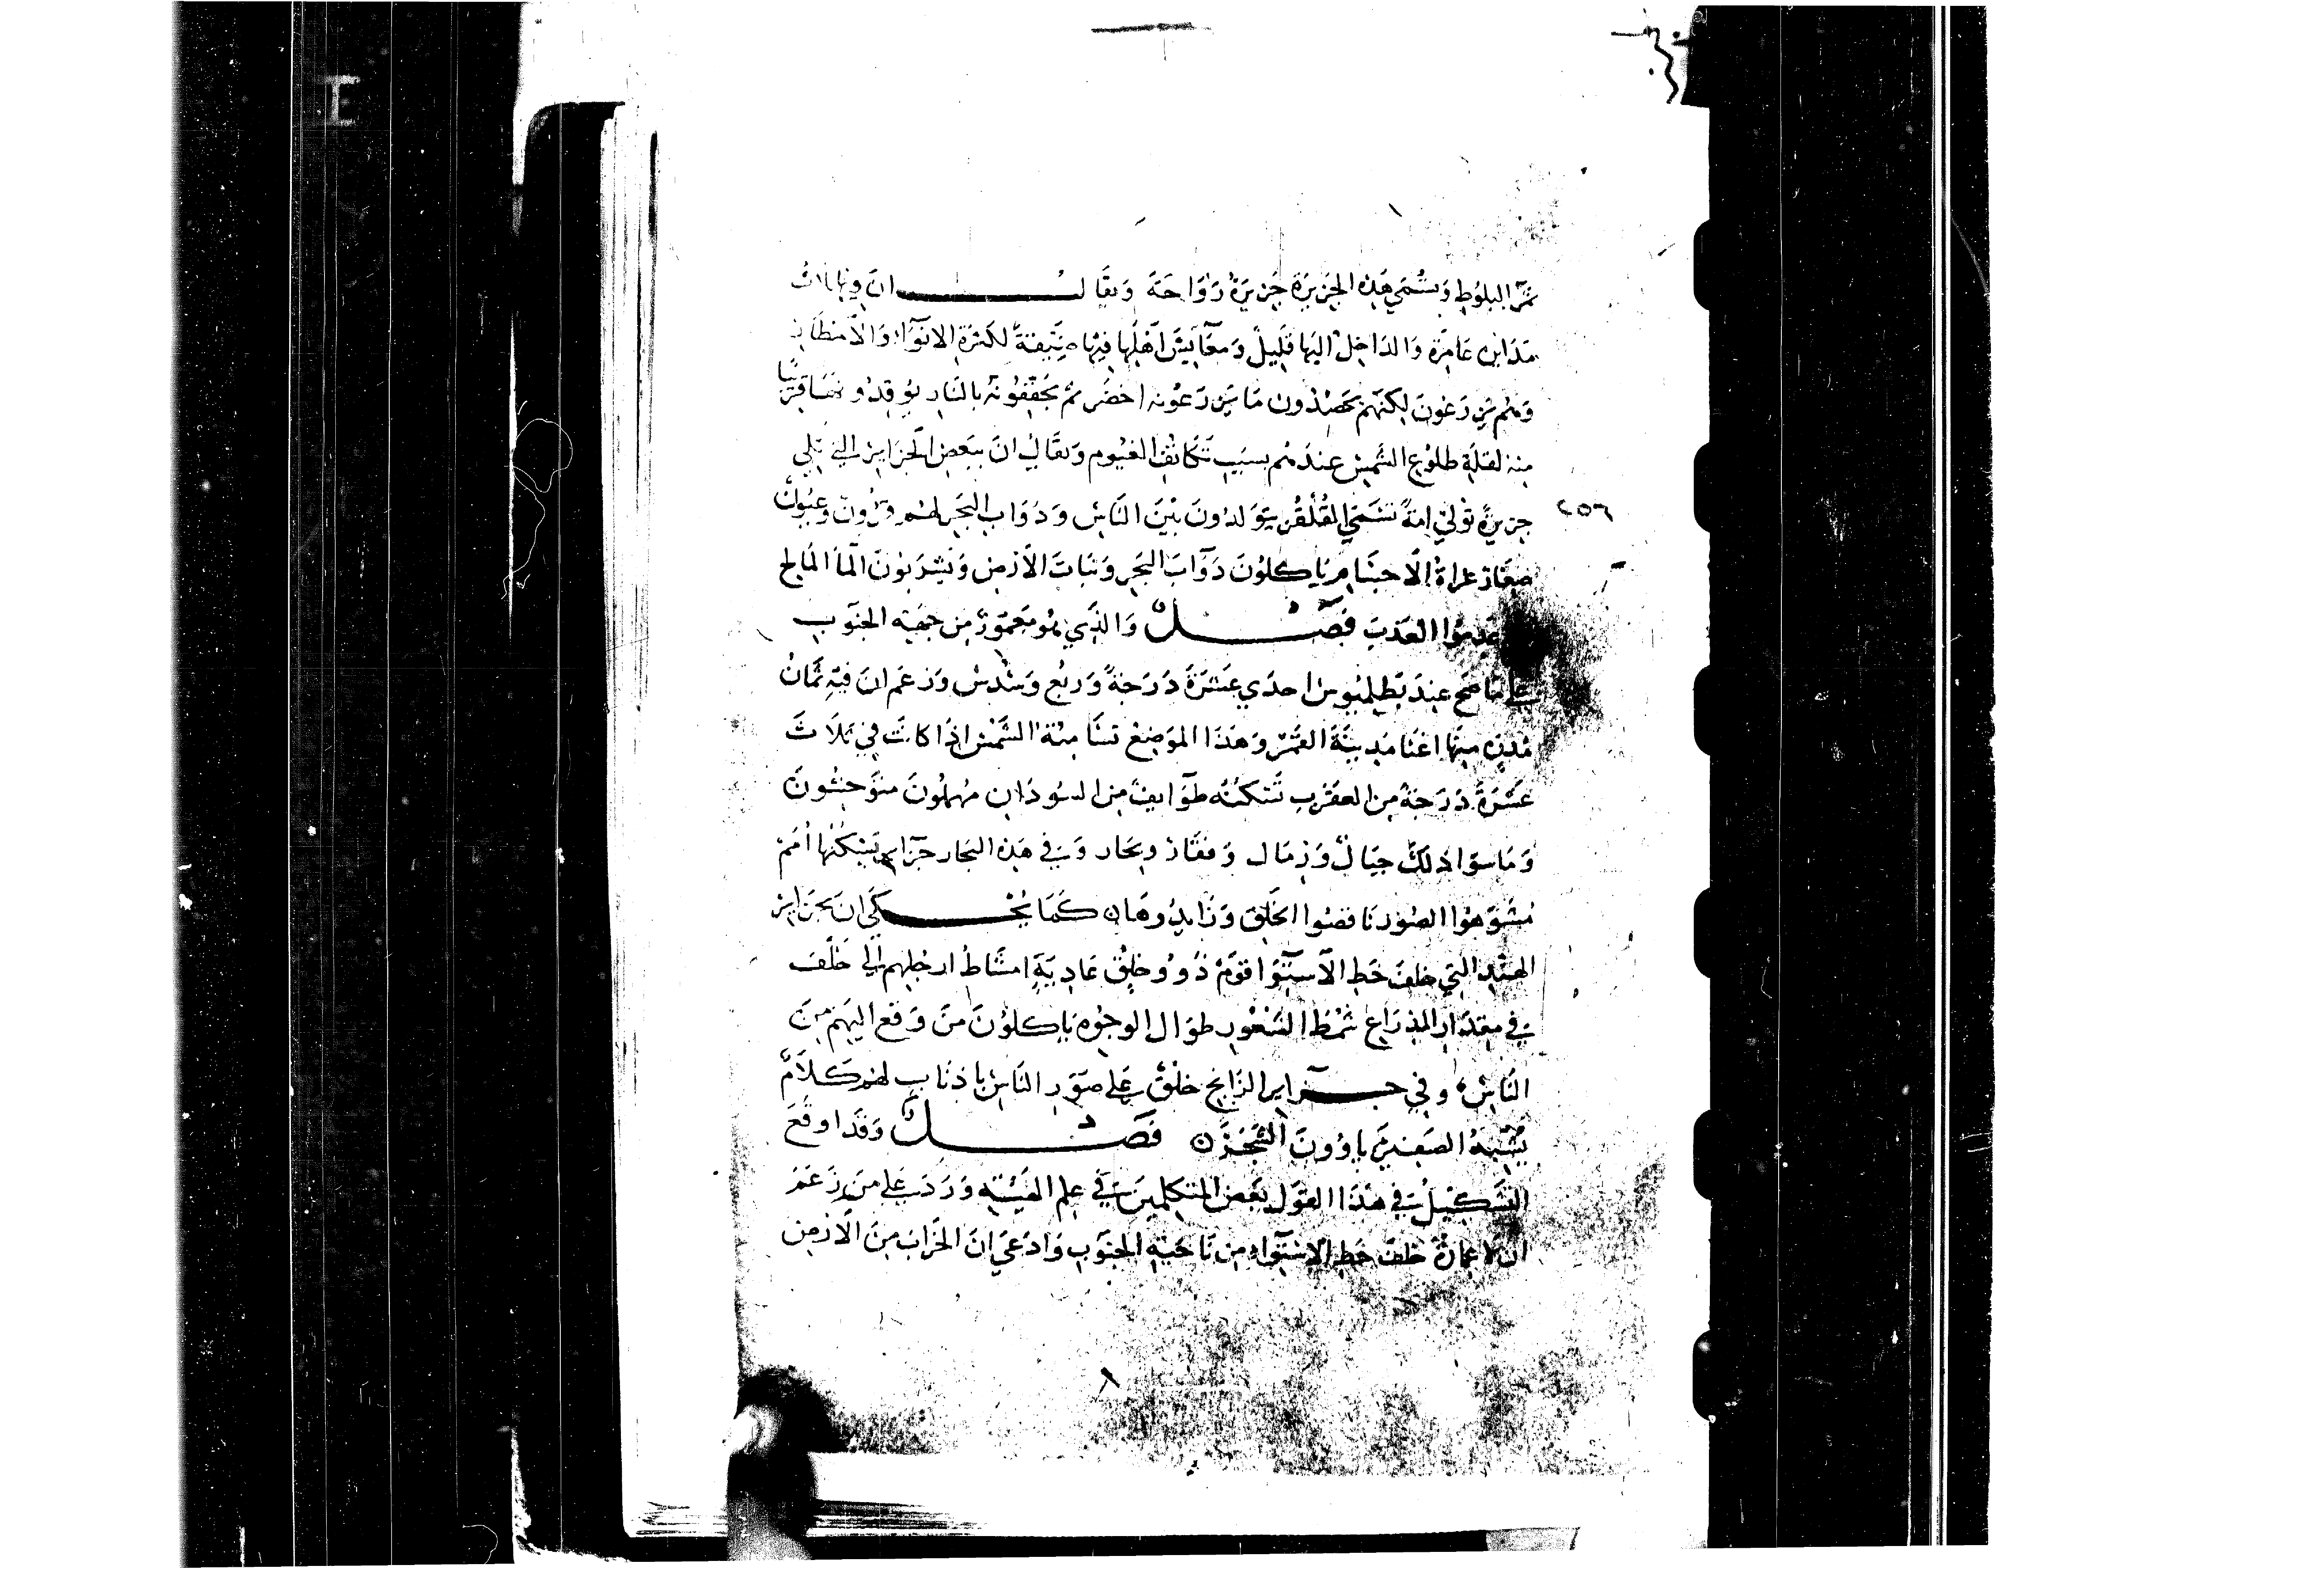 ثمر البلوط وتسمي هذه الجزيرة جزيرة دواحة ويقال ان فيها ثلاث
مداين عامرة والداخل اليها قليل ومعايش اهلها فيها ضيقة لكثرة الانوا والامطار
ومنهم يزرعون لكنهم يحصدون ما يزرعونه اخضر ثم يجففونه بالنار يوقدونها قريبا
منه لقلة طلوع الشمس عندهم بسبب تكاثف الغيوم ويقال ان ببعض الجزاير التي تلي
جزيرة تولي امة تسمي القلقن يتولدون بين الناس ودواب البحر لهم قرون وعيون
صغار عراة الاجسام ياكلون دواب البحر ونبات الارض ويشربون الما المالح
عدموا العذب فصل والذي هو معمور من جهة الجنوب
علي ما صح عند بطليموس احدي عشرة درجة وربع وسدس وزعم ان فيه ثمان
مدن منها اغنا مدينة القمر وهذا الموضع تسامته الشمس اذا كانت في ثلاث
عشرة درجة من العقرب تسكنه طوايف من السودان مهملون متوحشون
وما سوا ذلك جبال ورمال وقفار وبحار وفي هذه البحار جزاير تسكنها امم
مشوهوا الصور ناقصوا الخلق وزايدوها ن كما يحكي ان بجزاير
الهند التي خلف خط الاستوا قوم ذوو خلق عادية امشاط ارجلهم الي خلف
في مقدار الذراع شمط الشعور طوال الوجوه ياكلون من وقع اليهم من
الناس وفي جزاير الزابج خلق علي صور الناس باذناب لهم كلام
يشبه الصفير ياوون الشجر ن فصل وقد اوقع
التشكيك في هذا القول بعض المتكلمين في علم الهيئة ورد علي من زعم
ان لا عمارة خلف خط الاستواء من ناحية الجنوب وادعي ان الخراب من الارض
٢٥٦
٨